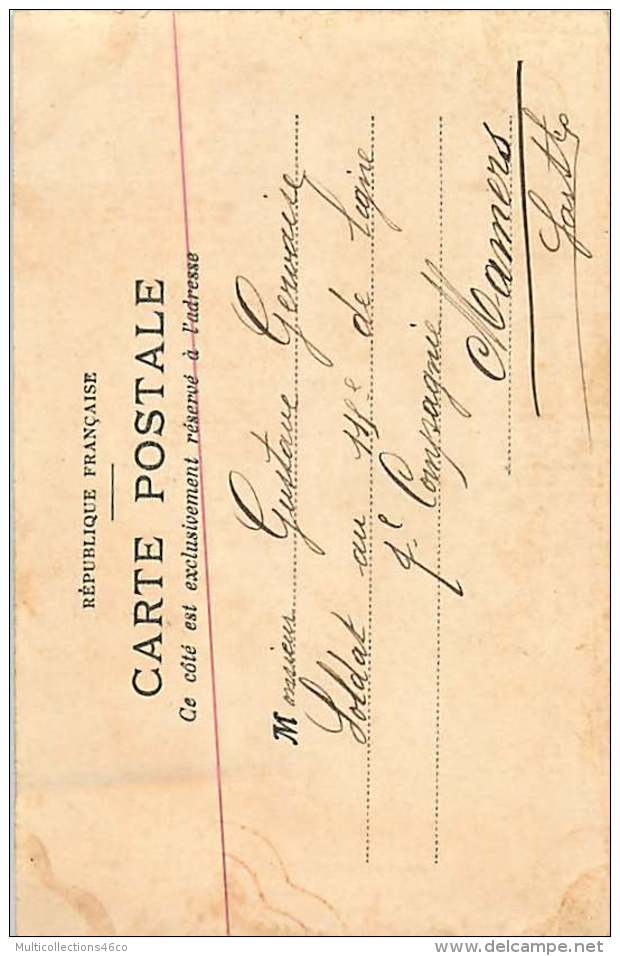 RÉPUBLIQUE FRANÇAISE
CARTE POSTALE
Ce côté est exclusivement réservé à l'adresse
Monsieur Gustave Gervaise
Soldat au 115e de ligne
4e Compagnie
Mamers
Sarthe
Multicollections46co
www.delcampe.net